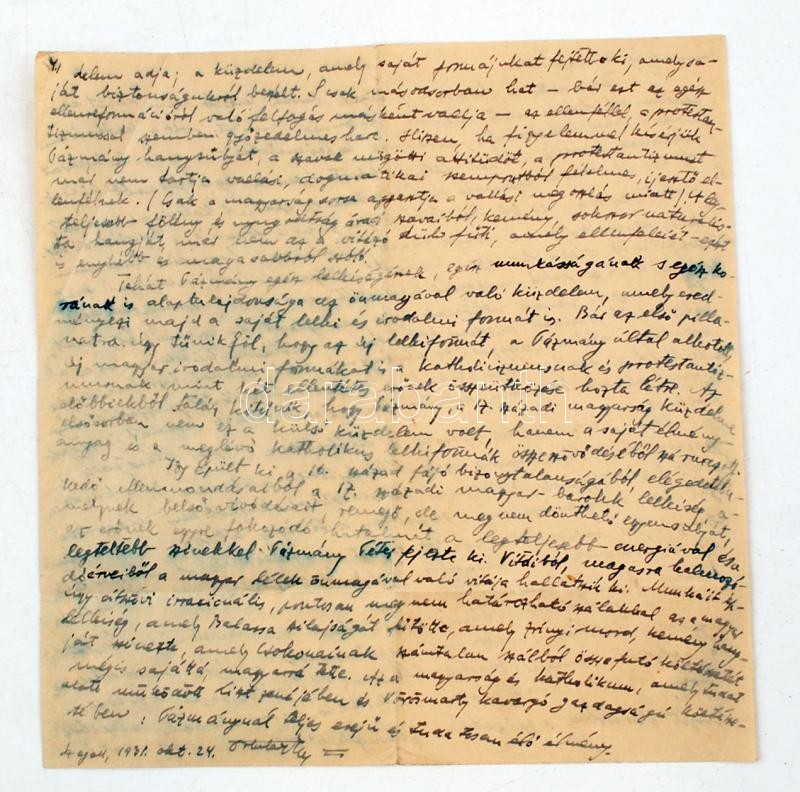 delem adja; a küzdelem, amely saját formájukat fejtette ki, amely sa-
ját biztonságukról beszél. Csak másodsorban het – bár ezt az egész
ellenreformációról való felfogás másként vallja – az ellenféllel, a protestan-
tizmussal szemben győzedelmes harc. Hiszen, ha figyelemmel kísérjük
Pázmány hangsúlyját, a szavak mögötti attitűdöt, a protestantizmust
már nem tartja vallási, dogmatikai szempontból félelmes, ijesztő el-
lenfélnek. (Csak a magyarság sorsa aggasztja a vallási megoszlás miatt) A leg-
teljesebb fölény és nyugodtság árad szavaiból, kemény, sokszor naturalis-
ta hangját, már nem az a vitéző düh fűti, amely ellenfeleiét
is enyhébb és magasabbról szóló.
Tehát Pázmány egész lelkiségének, egész munkásságának s egész ko-
rának is alaptulajdonsága az önmagával való küzdelem, amely ered-
ményezi majd a saját lelki és irodalmi formáit is. Bár az első pilla-
natra úgy tűnik föl, hogy az új lelkiformát, a Pázmány által alkotott
új magyar irodalmi formákat is a katholicizmusnak és protestantiz-
musnak mint két ellentétes erőnek összeütközése hozta létre. Az
előbbiekből talán kitűnik, hogy Pázmány, a 17. századi magyarság küzdelme
elsősorban nem ez a külső küzdelem volt, hanem a saját élmény-
anyag és a meglévő katholikus lelkiformák összeszövődéséből
Így épült ki a 16. század fájó bizonytalanságából, elégedetlen-
kedő ellenmondásaiból a 17. századi magyar-barokk lelkiség, a-
melynek belső vívódásait, remegő, de meg nem dönthető egyensúlyát,
az erőnek egyre fokozódó hatalmát a legteljesebb energiával és a
legteltebb színekkel Pázmány Péter fejezte ki. Vitáiból, magasra halmozó-
dó érveiből a magyar lélek önmagával való vitája hallatszik ki. Munkáit
úgy átszövi irracionális, pontosan meg nem határozható szálakkal az a magyar
lelkiség, amely Balassa szilajságát fűtötte, amely Zrínyi mord, kemény hang-
ját színezte, amely Csokonainak száztalan szálból összefutó költészetét
mégis sajáttá, magyarrá tette. Az a magyarság és katholikum, amely tudat
alatt működött Liszt zenéjében és Vörösmarty kavargó gazdagságú költésze-
tében, Pázmánynál teljes erejű és tudatosan élő élmény.
1931. okt. 24.
darabanth